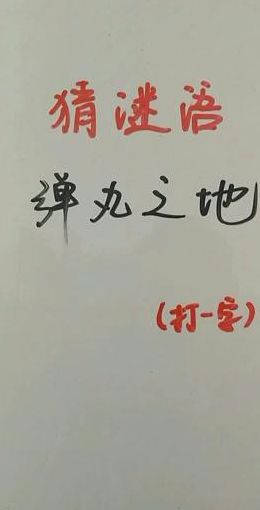 猜谜语
弹丸之地
(打一字)